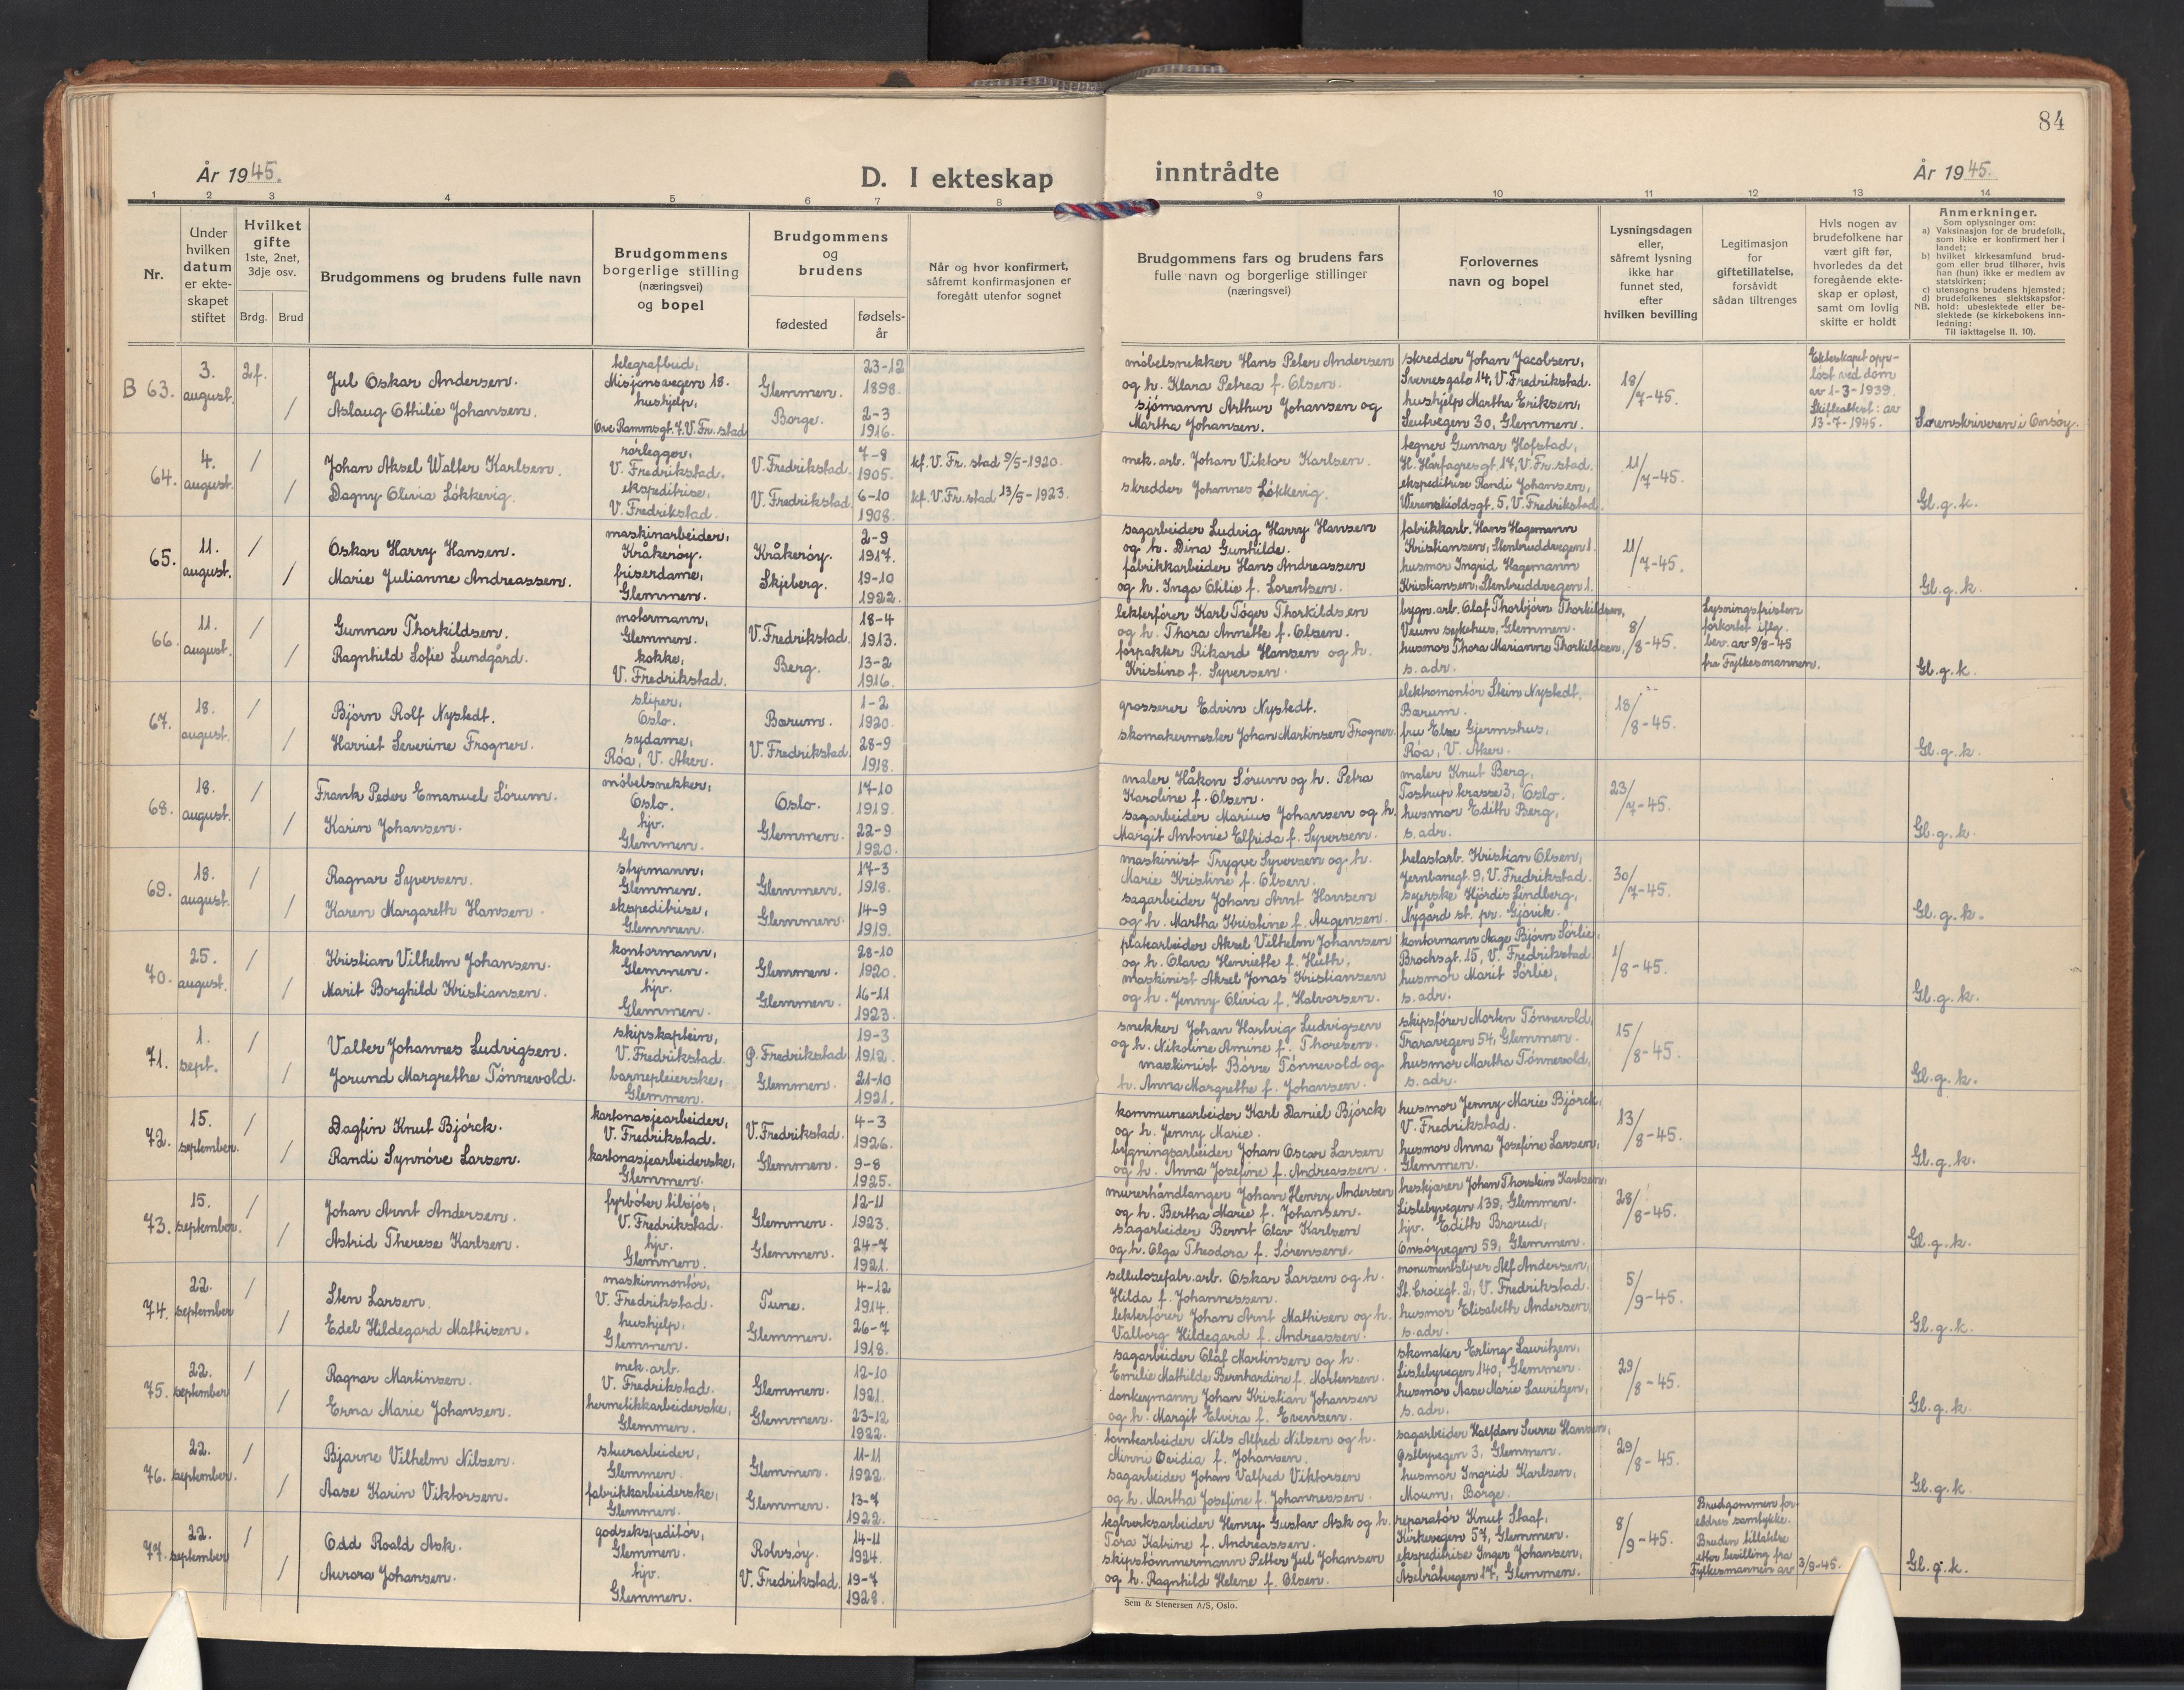 84
År 1945.
D. I ekteskap inntrådte
År 1945.
1 2 3 4 5 6 7 8 9 10 11 12 13 14
Nr.
Under hvilken datum er ekteskapet stiftet
Hvilket gifte 1ste, 2net, 3dje osv.
Brdg. Brud
Brudgommens og brudens fulle navn
Brudgommens borgerlige stilling (næringsvei) og bopel
Brudgommens og brudens
fødested
fødselsår
Når og hvor konfirmert, såfremt konfirmasjonen er foregått utenfor sognet
Brudgommens fars og brudens fars fulle navn og borgerlige stillinger (næringsvei)
Forlovernes navn og bopel
Lysningsdagen eller, såfremt lysning ikke har funnet sted, efter hvilken bevilling
Legitimasjon for giftetillatelse, forsåvidt sådan tiltrenges
Hvis nogen av brudefolkene har vært gift før, hvorledes da det foregående ekteskap er opløst, samt om lovlig skifte er holdt
Anmerkninger.
Som oplysninger om:
a) Vaksinasjon for de brudefolk, som ikke er konfirmert her i landet;
b) hvilket kirkesamfund brudgom eller brud tilhører, hvis han (hun) ikke er medlem av statskirken;
c) utensogns brudens hjemsted;
d) brudefolkenes slektskapsforhold: ubeslektede eller beslektede (se kirkebokens innledning:
NB.
Til iakttagelse II. 10).
B 63. 3. august. 2f. /
Jul Oskar Andersen.
Aslaug Othilie Johansen.
telegrafbud,
Misjonsvegen 18.
hushjelp,
Ove Rammsgt. 7. V. Fr.stad
Glemmen. 23-12 1898.
Borge. 2-3 1916.
møbelsnekker Hans Peter Andersen
og h. Klara Petrea f. Olsen.
sjømann Arthur Johansen og
Martha Johansen.
skredder Johan Jacobsen,
Sverresgate 14, V. Fredrikstad.
hushjelp Martha Eriksen,
Seutvegen 30, Glemmen.
18/7-45.
Ekteskapet oppløst ved dom
av 1-3-1939.
Skifteattest: av
13-7-1945.
Sorenskriveren i Onsøy.
64. 4. august. / /
Johan Aksel Walter Karlsen.
Dagny Olivia Løkkevig.
rørlegger,
V. Fredrikstad.
ekspeditrise,
V. Fredrikstad.
V. Fredrikstad. 7-8 1905.
V. Fredrikstad 6-10 1908.
kf. V. Fr.stad 9/5-1920.
kf. V. Fr.stad 13/5-1923.
mek. arb. Johan Viktor Karlsen.
skredder Johannes Løkkevig.
tegner Gunnar Hofstad,
H. Hårfagresgt. 17, V. Fr.stad.
ekspeditrise Randi Johansen,
Werenskioldsgt. 5, V. Fredrikstad.
11/7-45.
Gl.g.k.
65. 11. august. / /
Oskar Harry Hansen.
Marie Julianne Andreassen.
maskinarbeider,
Kråkerøy.
friserdame,
Glemmen.
Kråkerøy. 2-9 1917.
Skjeberg. 19-10 1922.
sagarbeider Ludvig Harry Hansen
og h. Dina Gunhilde.
fabrikkarbeider Hans Andreassen
og h. Inga Otilie f. Lorentsen.
fabrikkarb. Hans Hagemann
Kristiansen, Stenbruddvegen 1.
husmor Ingrid Hagemann
Kristiansen, Stenbruddvegen 1.
11/7-45.
Gl.g.k.
66. 11. august. / /
Gunnar Thorkildsen.
Ragnhild Sofie Lundgård.
motormann,
Glemmen.
kokke,
V. Fredrikstad.
V. Fredrikstad. 18-4 1913.
Berg. 13-2 1916.
lekterfører Karl Tøger Thorkildsen
og h. Thora Annette f. Olsen.
forpakter Rikard Hansen og h.
Kristine f. Syversen.
bygn.arb. Olaf Thorbjørn Thorkildsen,
Veum sykehus, Glemmen.
husmor Thora Marianne Thorkildsen,
s. adr.
8/8-45.
Lysningsfristen
forkortet iflg.
bev. av 9/8-45
fra Fylkesmannen.
Gl.g.k.
67. 18. august. / /
Bjørn Rolf Nystedt.
Harriet Severine Frogner.
sliper,
Oslo.
sydame,
Røa, V. Aker.
Bærum. 1-2 1920.
V. Fredrikstad 28-9 1918.
grosserer Edvin Nystedt.
skomakermester Johan Martinsen Frogner.
elektromontør Stein Nystedt,
Bærum.
fru Else Gjermshus,
Røa, V. Aker.
18/8-45.
Gl.g.k.
68. 18. august. / /
Frank Peder Emanuel Sørum.
Karin Johansen.
møbelsnekker,
Oslo.
hjv.
Glemmen.
Oslo. 17-10 1919.
Glemmen. 22-9 1920.
maler Håkon Sørum og h. Petra
Karoline f. Olsen.
sagarbeider Marius Johansen og h.
Margit Antonie Elfrida f. Syversen.
maler Knut Berg,
Tostrup terasse 3, Oslo.
husmor Edith Berg,
s. adr.
23/7-45.
Gl.g.k.
69. 18. august. / /
Ragnar Syversen.
Karen Margareth Hansen.
styrmann,
Glemmen.
ekspeditrise,
Glemmen.
Glemmen. 17-3 1918.
Glemmen. 14-9 1919.
maskinist Trygve Syversen og h.
Marie Kristine f. Olsen.
sagarbeider Johan Arnt Hansen
og h. Martha Kristine f. Augensen.
helastarb. Kristian Olsen,
Jernbanegt. 9, V. Fredrikstad.
syerske Hjørdis Lindberg,
Nygård st. pr. Gjøvik.
30/7-45.
Gl.g.k.
70. 25. august. / /
Kristian Vilhelm Johansen.
Marit Borghild Kristiansen.
kontormann,
Glemmen.
hjv.
Glemmen.
Glemmen. 28-10 1920.
Glemmen. 16-11 1923.
platearbeider Aksel Vilhelm Johansen
og h. Olava Henriette f. Huth.
maskinist Aksel Jonas Kristiansen
og h. Jenny Olivia f. Halvorsen.
kontormann Aage Bjørn Sørlie,
Brochsgt. 15, V. Fredrikstad.
husmor Marit Sørlie,
s. adr.
1/8-45.
Gl.g.k.
71. 1. sept. / /
Valter Johannes Ludvigsen.
Jorund Margrethe Tønnevold.
skipskaptein,
V. Fredrikstad.
barnepleierske,
Glemmen.
G. Fredrikstad 19-3 1912.
Glemmen. 21-10 1921.
snekker Johan Hartvig Ludvigsen
og h. Nikoline Amine f. Thoresen.
maskinist Børre Tønnevold og
h. Anna Margrethe f. Johansen.
skipsfører Morten Tønnevold,
Traravegen 54, Glemmen.
husmor Martha Tønnevold,
s. adr.
15/8-45.
Gl.g.k.
72. 15. september. / /
Dagfin Knut Bjørck.
Randi Synnøve Larsen.
kartonasjearbeider,
V. Fredrikstad.
kartonasjearbeiderske,
Glemmen.
V. Fredrikstad. 4-3 1926.
Glemmen. 9-8 1925.
kommunearbeider Karl Daniel Bjørck
og h. Jenny Marie.
bygningsarbeider Johan Oscar Larsen
og h. Anna Josefine f. Andreassen.
husmor Jenny Marie Bjørck,
V. Fredrikstad.
husmor Anna Josefine Larsen,
Glemmen.
13/8-45.
Gl.g.k.
73. 15. september. / /
Johan Arnt Andersen.
Astrid Therese Karlsen.
fyrbøter tilsjøs,
V. Fredrikstad.
hjv.
Glemmen.
Glemmen. 12-11 1923.
Glemmen. 24-7 1921.
murerhåndlanger Johan Henry Andersen
og h. Bertha Marie f. Johansen.
sagarbeider Bernt Olav Karlsen
og h. Olga Theodora f. Sørensen.
heskjærer Johan Thorstein Karlsen,
Lislebyvegen 139, Glemmen.
hjv. Edith Brarud,
Onsøyvegen 59, Glemmen.
28/8-45.
Gl.g.k.
74. 22. september / /
Sten Larsen.
Edel Hildegard Mathisen.
maskinmontør,
V. Fredrikstad.
hushjelp,
Glemmen.
Tune. 4-12 1914.
Glemmen. 26-7 1918.
sellulosefabr.arb. Oskar Larsen og h.
Hilda f. Johannessen.
lekterfører Johan Arnt Mathisen og h.
Valborg Hildegard f. Andreassen.
monumentsliper Alf Andersen,
St. Croixgt. 2, V. Fredrikstad.
husmor Elisabeth Andersen,
s. adr.
5/9-45.
Gl.g.k.
75. 22. september / /
Ragnar Martinsen.
Erna Marie Johansen.
mek. arb.
V. Fredrikstad.
hermetikkarbeiderske,
Glemmen.
Glemmen. 12-10 1921.
Glemmen. 23-12 1922.
sagarbeider Olaf Martinsen og h.
Emilie Mathilde Bernhardine f. Mortensen.
donkeymann Johan Kristian Johansen
og h. Margit Elvira f. Evensen.
skomaker Erling Lauritzen,
Lislebyvegen 140, Glemmen.
husmor Aase Marie Lauritzen,
s. adr.
29/8-45.
Gl.g.k.
76. 22. september. / /
Bjarne Vilhelm Nilsen.
Aase Karin Viktorsen.
stuerarbeider,
Glemmen.
fabrikkarbeiderske,
Glemmen.
Glemmen. 11-11 1922.
Glemmen. 13-7 1922.
tomtearbeider Nils Alfred Nilsen og h.
Minni Ovidia f. Johansen.
sagarbeider Johan Valfred Viktorsen
og h. Martha Josefine f. Johannessen.
sagarbeider Halfdan Sverre Hansen,
Østbyvegen 3, Glemmen.
husmor Ingrid Karlsen,
Moum, Borge.
29/8-45.
Gl.g.k.
77. 22. september / /
Odd Roald Ask.
Aurora Johansen.
godsekspeditør,
Glemmen.
hjv.
Glemmen.
Rolvsøy. 14-11 1924.
V. Fredrikstad. 19-7 1928.
teglverksarbeider Henry Gustav Ask og h.
Tora Katrine f. Andreassen.
skipstømmermann Petter Jul Johansen
og h. Ragnhild Helene f. Olsen.
reparatør Knut Staaf,
Kirkevegen 57, Glemmen.
ekspeditrise Inger Johansen,
Åsebråtvegen 17, Glemmen.
8/9-45.
Brudgommen foreldres samtykke.
Bruden tillatelse
etter bevilling fra
Fylkesmannen av 3/9-45.
Gl.g.k.
Sem & Stenersen A/S, Oslo.